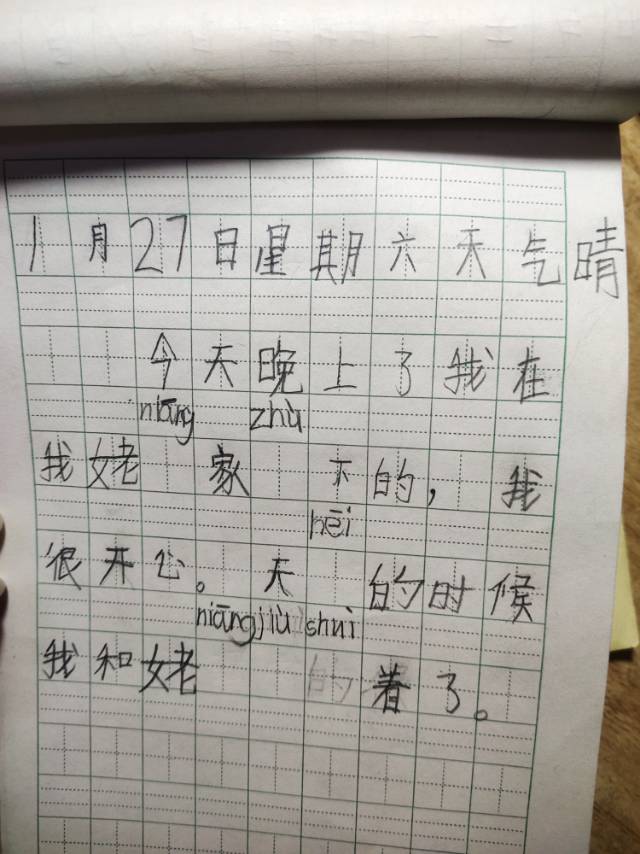 1月27日星期六天气晴
今天晚上了我在
niāng zhù
我姥 家 下的，我
hēi
很开心。天 的时候
niāng jiù shuì
我和姥 的着了。